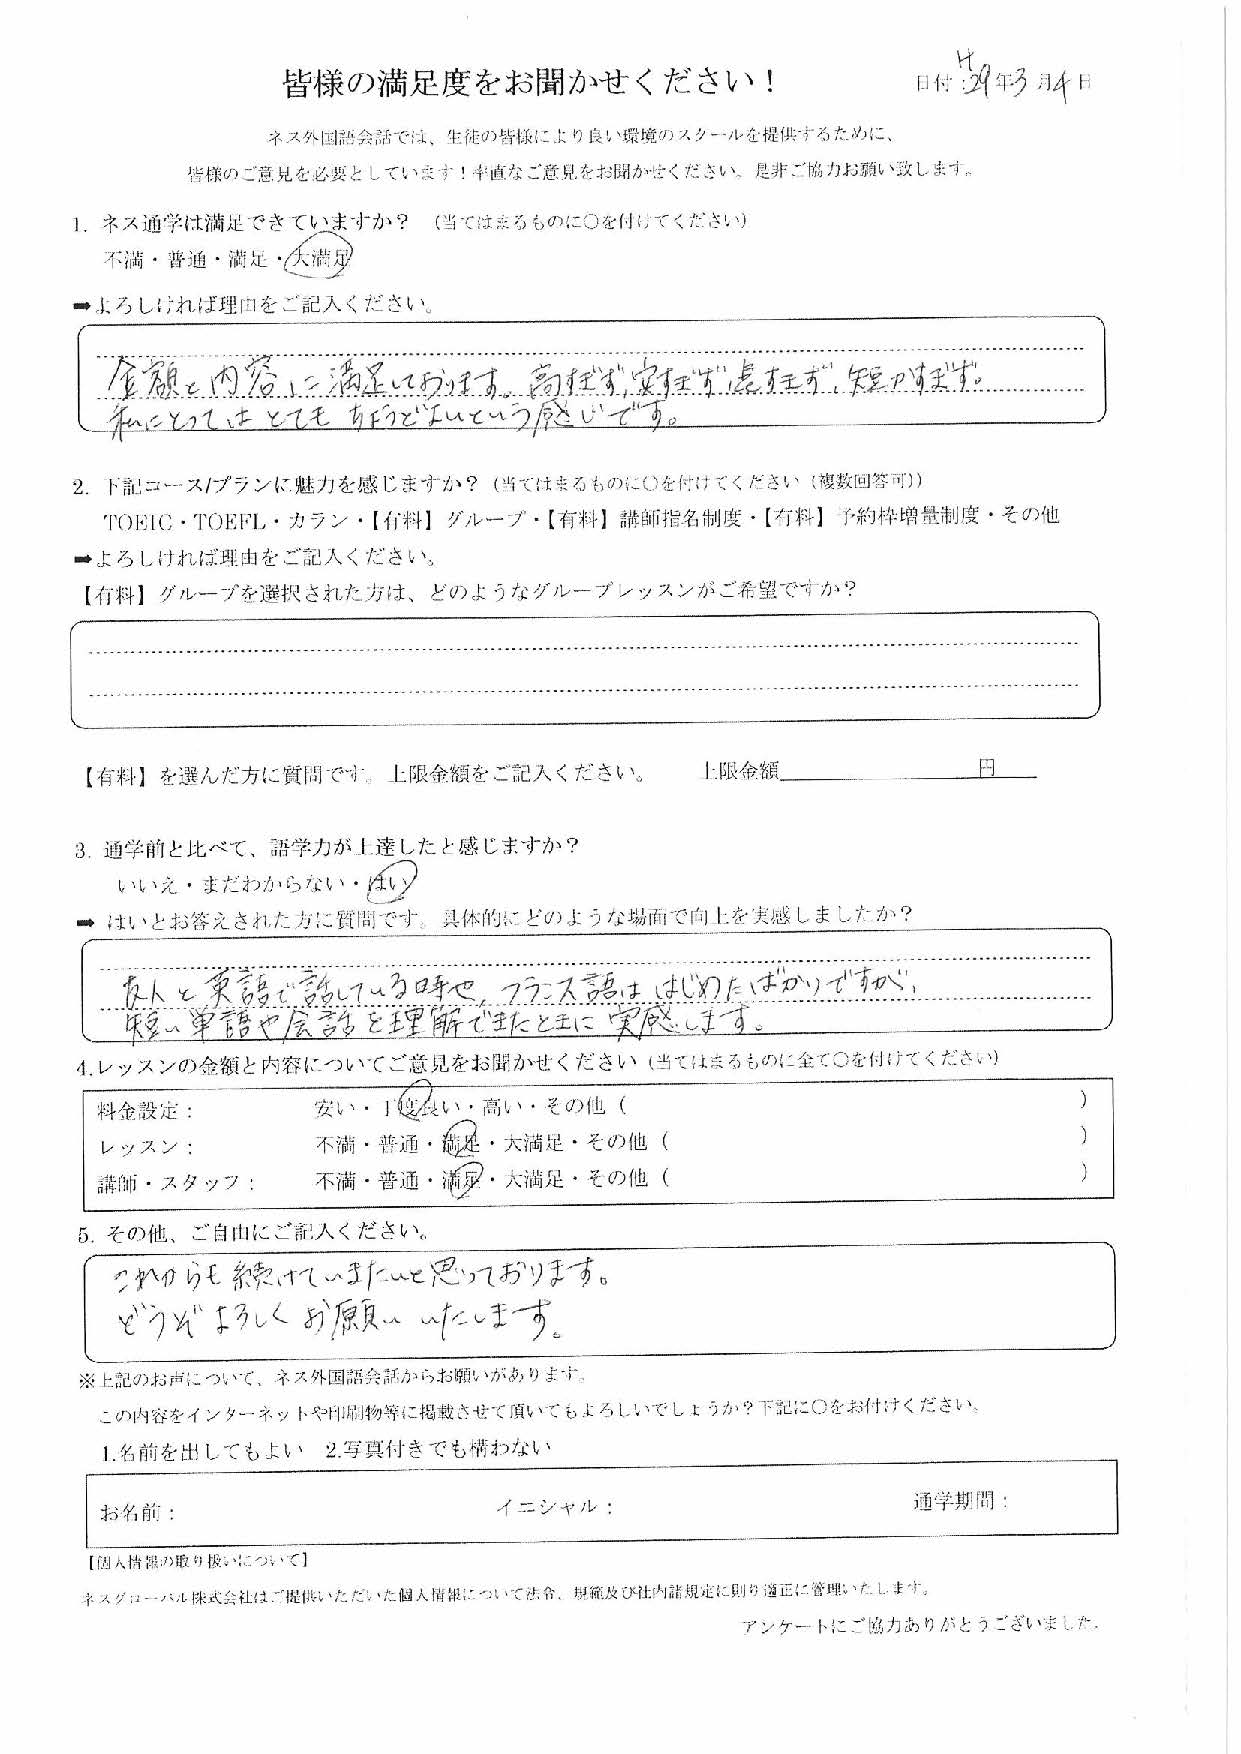 皆様の満足度をお聞かせください！
日付：H29年3月4日
ネス外国語会話では、生徒の皆様により良い環境のスクールを提供するために、
皆様のご意見を必要としています！率直なご意見をお聞かせください。是非ご協力お願い致します。
1. ネス通学は満足できていますか？（当てはまるものに〇を付けてください）
不満・普通・満足・大満足
➡よろしければ理由をご記入ください。
金額と内容に満足しております。高すぎず、安すぎず、長すぎず、短かすぎず。
私にとってはとてもちょうどよいという感じです。
2. 下記コース/プランに魅力を感じますか？（当てはまるものに〇を付けてください（複数回答可））
TOEIC・TOEFL・カラン・【有料】グループ・【有料】講師指名制度・【有料】予約枠増量制度・その他
➡よろしければ理由をご記入ください。
【有料】グループを選択された方は、どのようなグループレッスンがご希望ですか？
【有料】を選んだ方に質問です。上限金額をご記入ください。 上限金額 円
3. 通学前と比べて、語学力が上達したと感じますか？
いいえ・まだわからない・はい
➡ はいとお答えされた方に質問です。具体的にどのような場面で向上を実感しましたか？
友人と英語で話している時や、フランス語ははじめたばかりですが、
短い単語や会話を理解できたときに実感します。
4.レッスンの金額と内容についてご意見をお聞かせください（当てはまるものに全て〇を付けてください）
料金設定： 安い・丁度良い・高い・その他（ ）
レッスン： 不満・普通・満足・大満足・その他（ ）
講師・スタッフ： 不満・普通・満足・大満足・その他（ ）
5. その他、ご自由にご記入ください。
これからも続けていきたいと思っております。
どうぞよろしくお願いいたします。
※上記のお声について、ネス外国語会話からお願いがあります。
この内容をインターネットや印刷物等に掲載させて頂いてもよろしいでしょうか？下記に〇をお付けください。
1.名前を出してもよい 2.写真付きでも構わない
お名前： イニシャル： 通学期間：
【個人情報の取り扱いについて】
ネスグローバル株式会社はご提供いただいた個人情報について法令、規範及び社内諸規定に則り適正に管理いたします。
アンケートにご協力ありがとうございました。